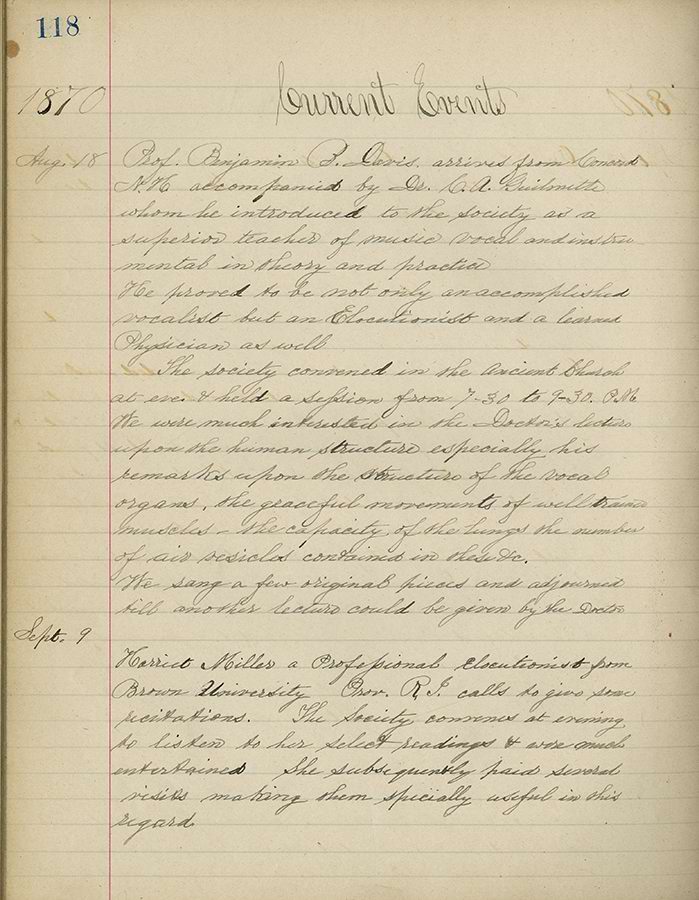 118
1870 Current Events
Aug. 18 Prof. Benjamin B. Davis. arrives from Concord
N.H. accompanied by Dr. C. A. Guilmette
whom he introduced to the society as a
superior teacher of music vocal and instru-
mental in theory and practice
He proved to be not only an accomplished
vocalist but an Elocutionist and a learned
Physician as well
The society convened in the Ancient Church
at eve. & held a session from 7-30 to 9-30. P.M.
We were much interested in the Doctor's lecture
upon the human structure especially his
remarks upon the structure of the vocal
organs, the graceful movements of well trained
muscles - the capacity of the lungs the number
of air vesicles contained in these &c.
We sang a few original pieces and adjourned
till another lecture could be given by the Doctor
Sept. 9
Harriet Miller a Professional elocutionist from
Brown University Prov. R.I. calls to give some
recitations. The Society convenes at evening
to listen to her select readings & were much
entertained She subsequently paid several
visits making them specially useful in this
regard